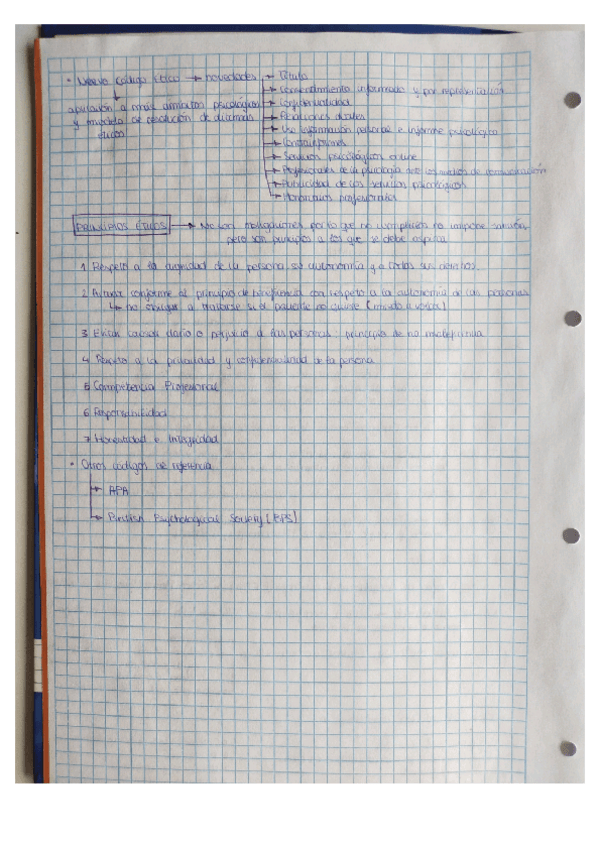 • Nuevo Código Ético → novedades → Título
→ Consentimiento informado y por representación
aplicación a más ámbitos psicológicos → Confidencialidad
y modelo de resolución de dilemas → Relaciones duales
éticos → Uso información personal e informe psicológico
→ Contrainformes
→ Servicios psicológicos online
→ Profesionales de la psicología en los medios de comunicación
→ Publicidad de los servicios psicológicos
→ Honorarios profesionales
PRINCIPIOS ÉTICOS → No son obligaciones por lo que no cumplirlos no impone sanción,
pero son principios a los que se debe aspirar
1. Respeto a la dignidad de la persona, su autonomía y a todos sus derechos.
2. Actuar conforme al principio de beneficencia con respeto a la autonomía de las personas
↳ no obligar a tratarse si el paciente no quiere
3. Evitar causar daño o perjuicio a las personas: principio de no maleficencia
4. Respeto a la privacidad y confidencialidad de la persona
5. Competencia Profesional
6. Responsabilidad
7. Honestidad e Integridad
• Otros códigos de referencia
→ APA
→ British Psychological Society (BPS)